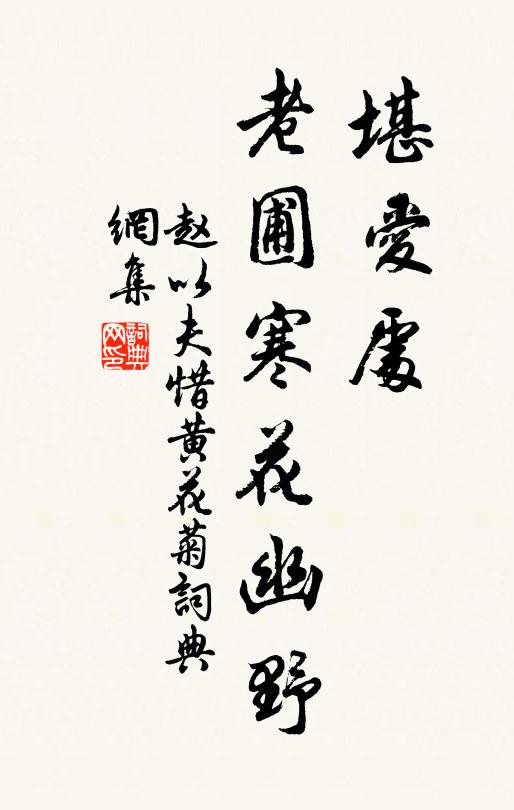 堪愛處
老圃寒花幽野
赵以夫惜黄花菊詞典
網集
詞典网印